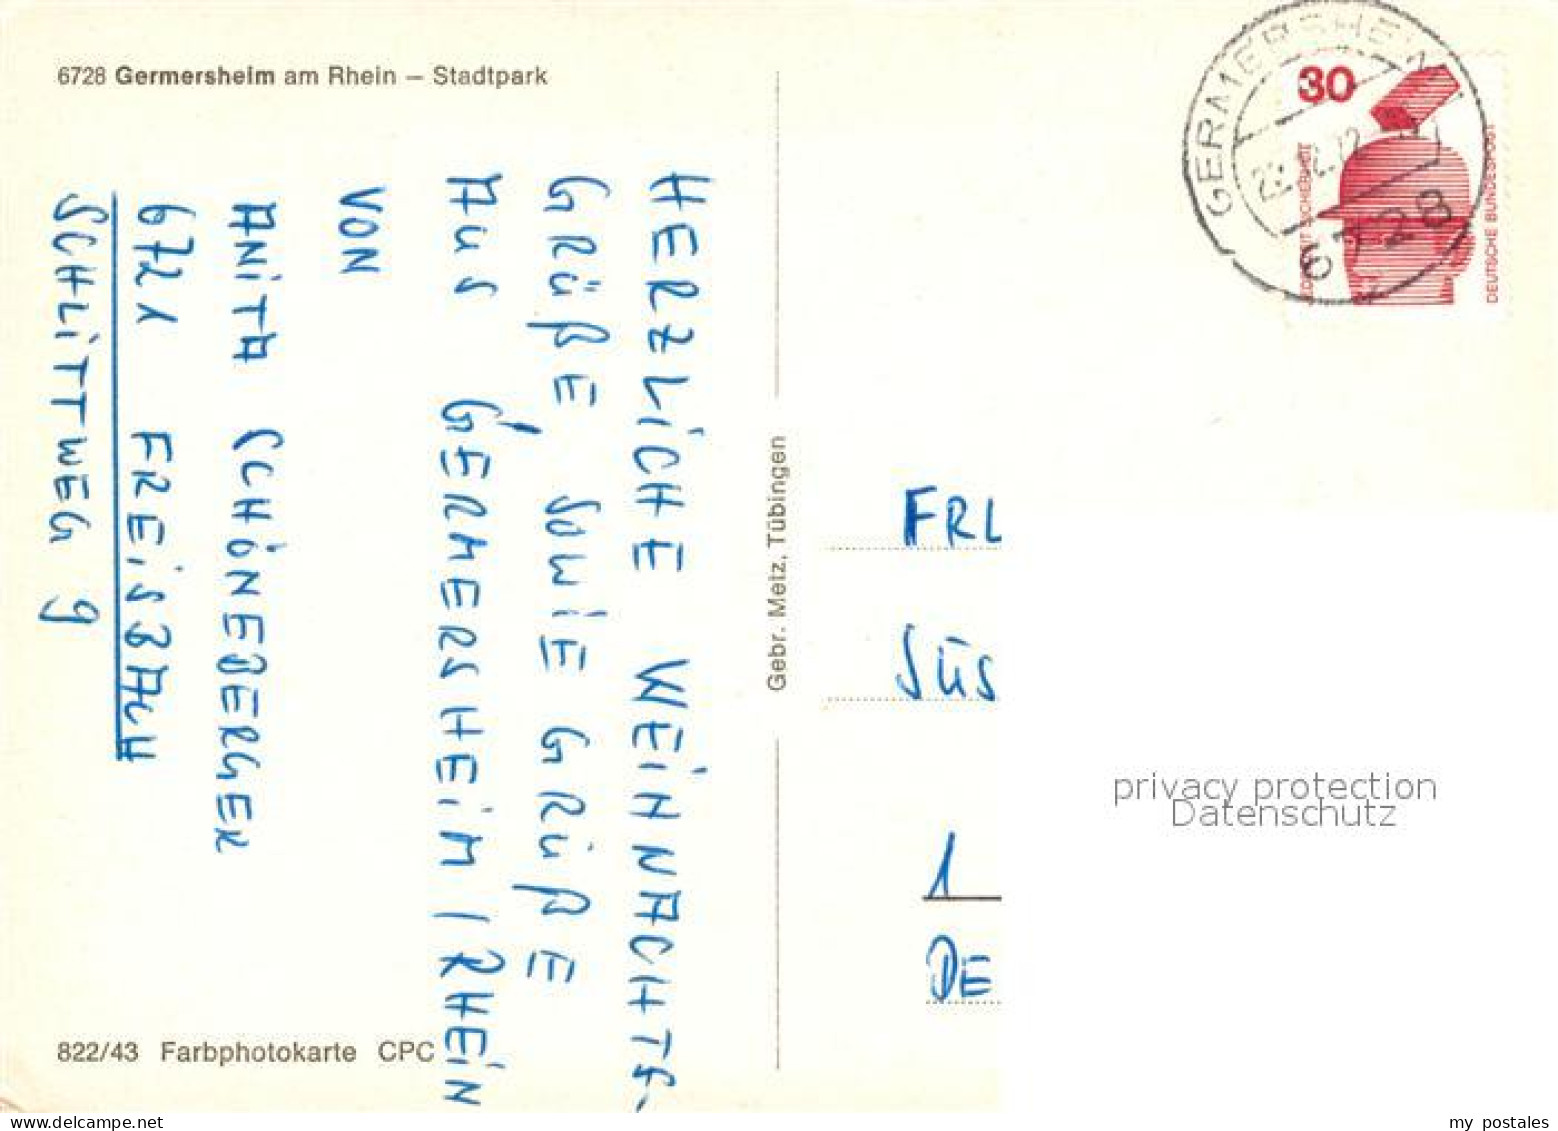 6728 Germersheim am Rhein – Stadtpark
HERZLICHE WEIHNACHTS-
GRÜßE, SOWIE GRÜßE
AUS GERMERSHEIM / RHEIN
VON
ANITA SCHÖNEBERGER
6721 FREISBACH
SCHLITTWEG 9
822/43 Farbphotokarte CPC
Gebr. Metz, Tübingen
GERMERSHEIM
6728
30
DEUTSCHE BUNDESPOST
FRL
SÜS
1
DE
privacy protection
Datenschutz
my postales